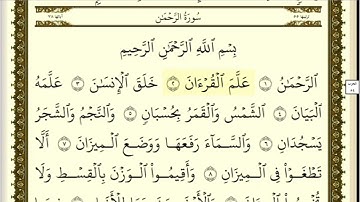 سُورَةُ الرَّحْمَٰن
بِسْمِ ٱللَّهِ ٱلرَّحْمَٰنِ ٱلرَّحِيمِ
ٱلرَّحْمَٰنُ ١ عَلَّمَ ٱلْقُرْءَانَ ٢ خَلَقَ ٱلْإِنسَٰنَ ٣ عَلَّمَهُ
ٱلْبَيَانَ ٤ ٱلشَّمْسُ وَٱلْقَمَرُ بِحُسْبَانٍ ٥ وَٱلنَّجْمُ وَٱلشَّجَرُ
يَسْجُدَانِ ٦ وَٱلسَّمَآءَ رَفَعَهَا وَوَضَعَ ٱلْمِيزَانَ ٧ أَلَّا
تَطْغَوْا۟ فِى ٱلْمِيزَانِ ٨ وَأَقِيمُوا۟ ٱلْوَزْنَ بِٱلْقِسْطِ وَلَا